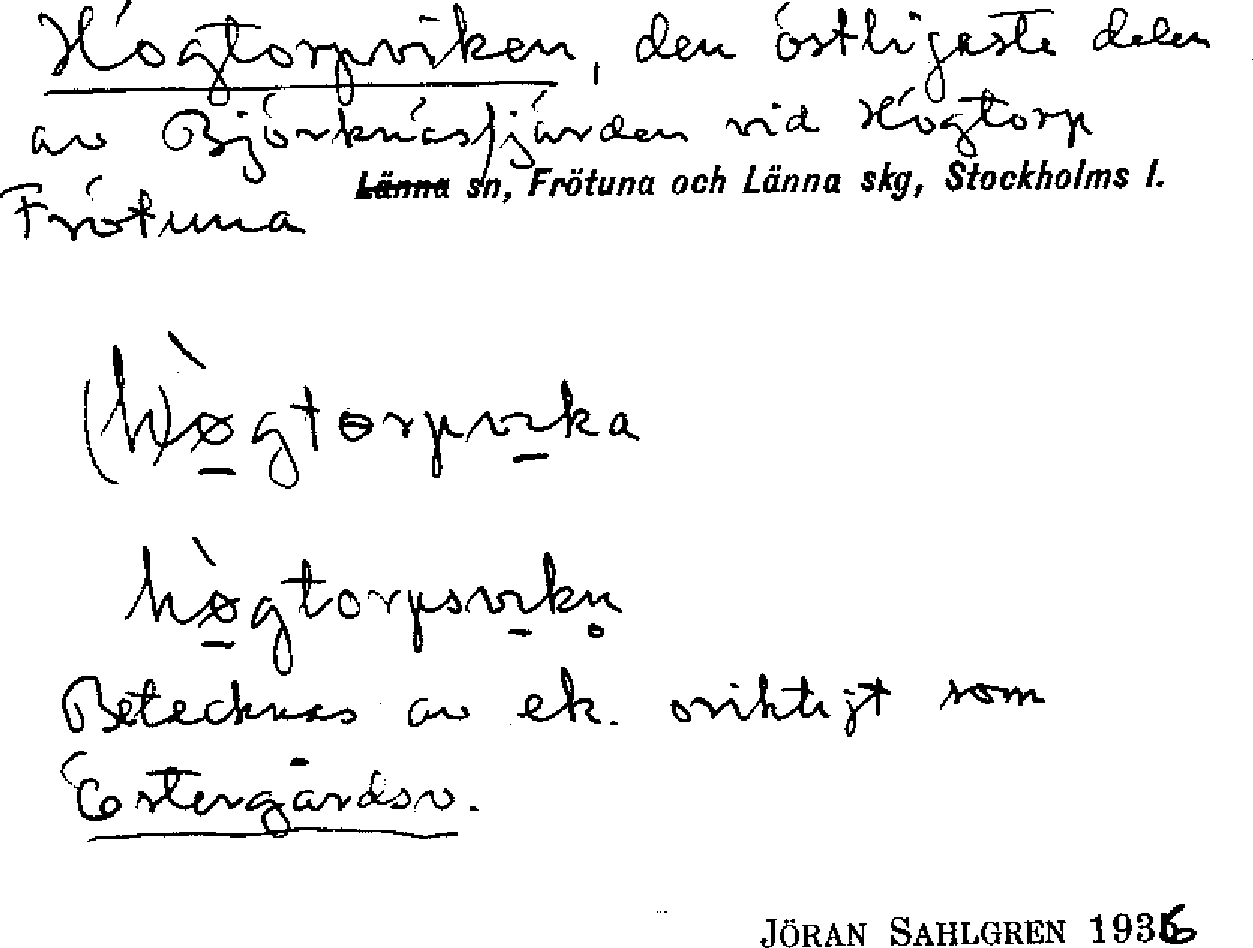 Högtorpviken, den östligaste delen
av Björknäsfjärden vid Högtorp
Länna sn, Frötuna och Länna skg, Stockholms l.
Frötuna
(h)ø̀gtorpvika
hø̀gtorpsvikn̥
Betecknas av ek. oriktigt som
Östergårdsv.
JÖRAN SAHLGREN 1936